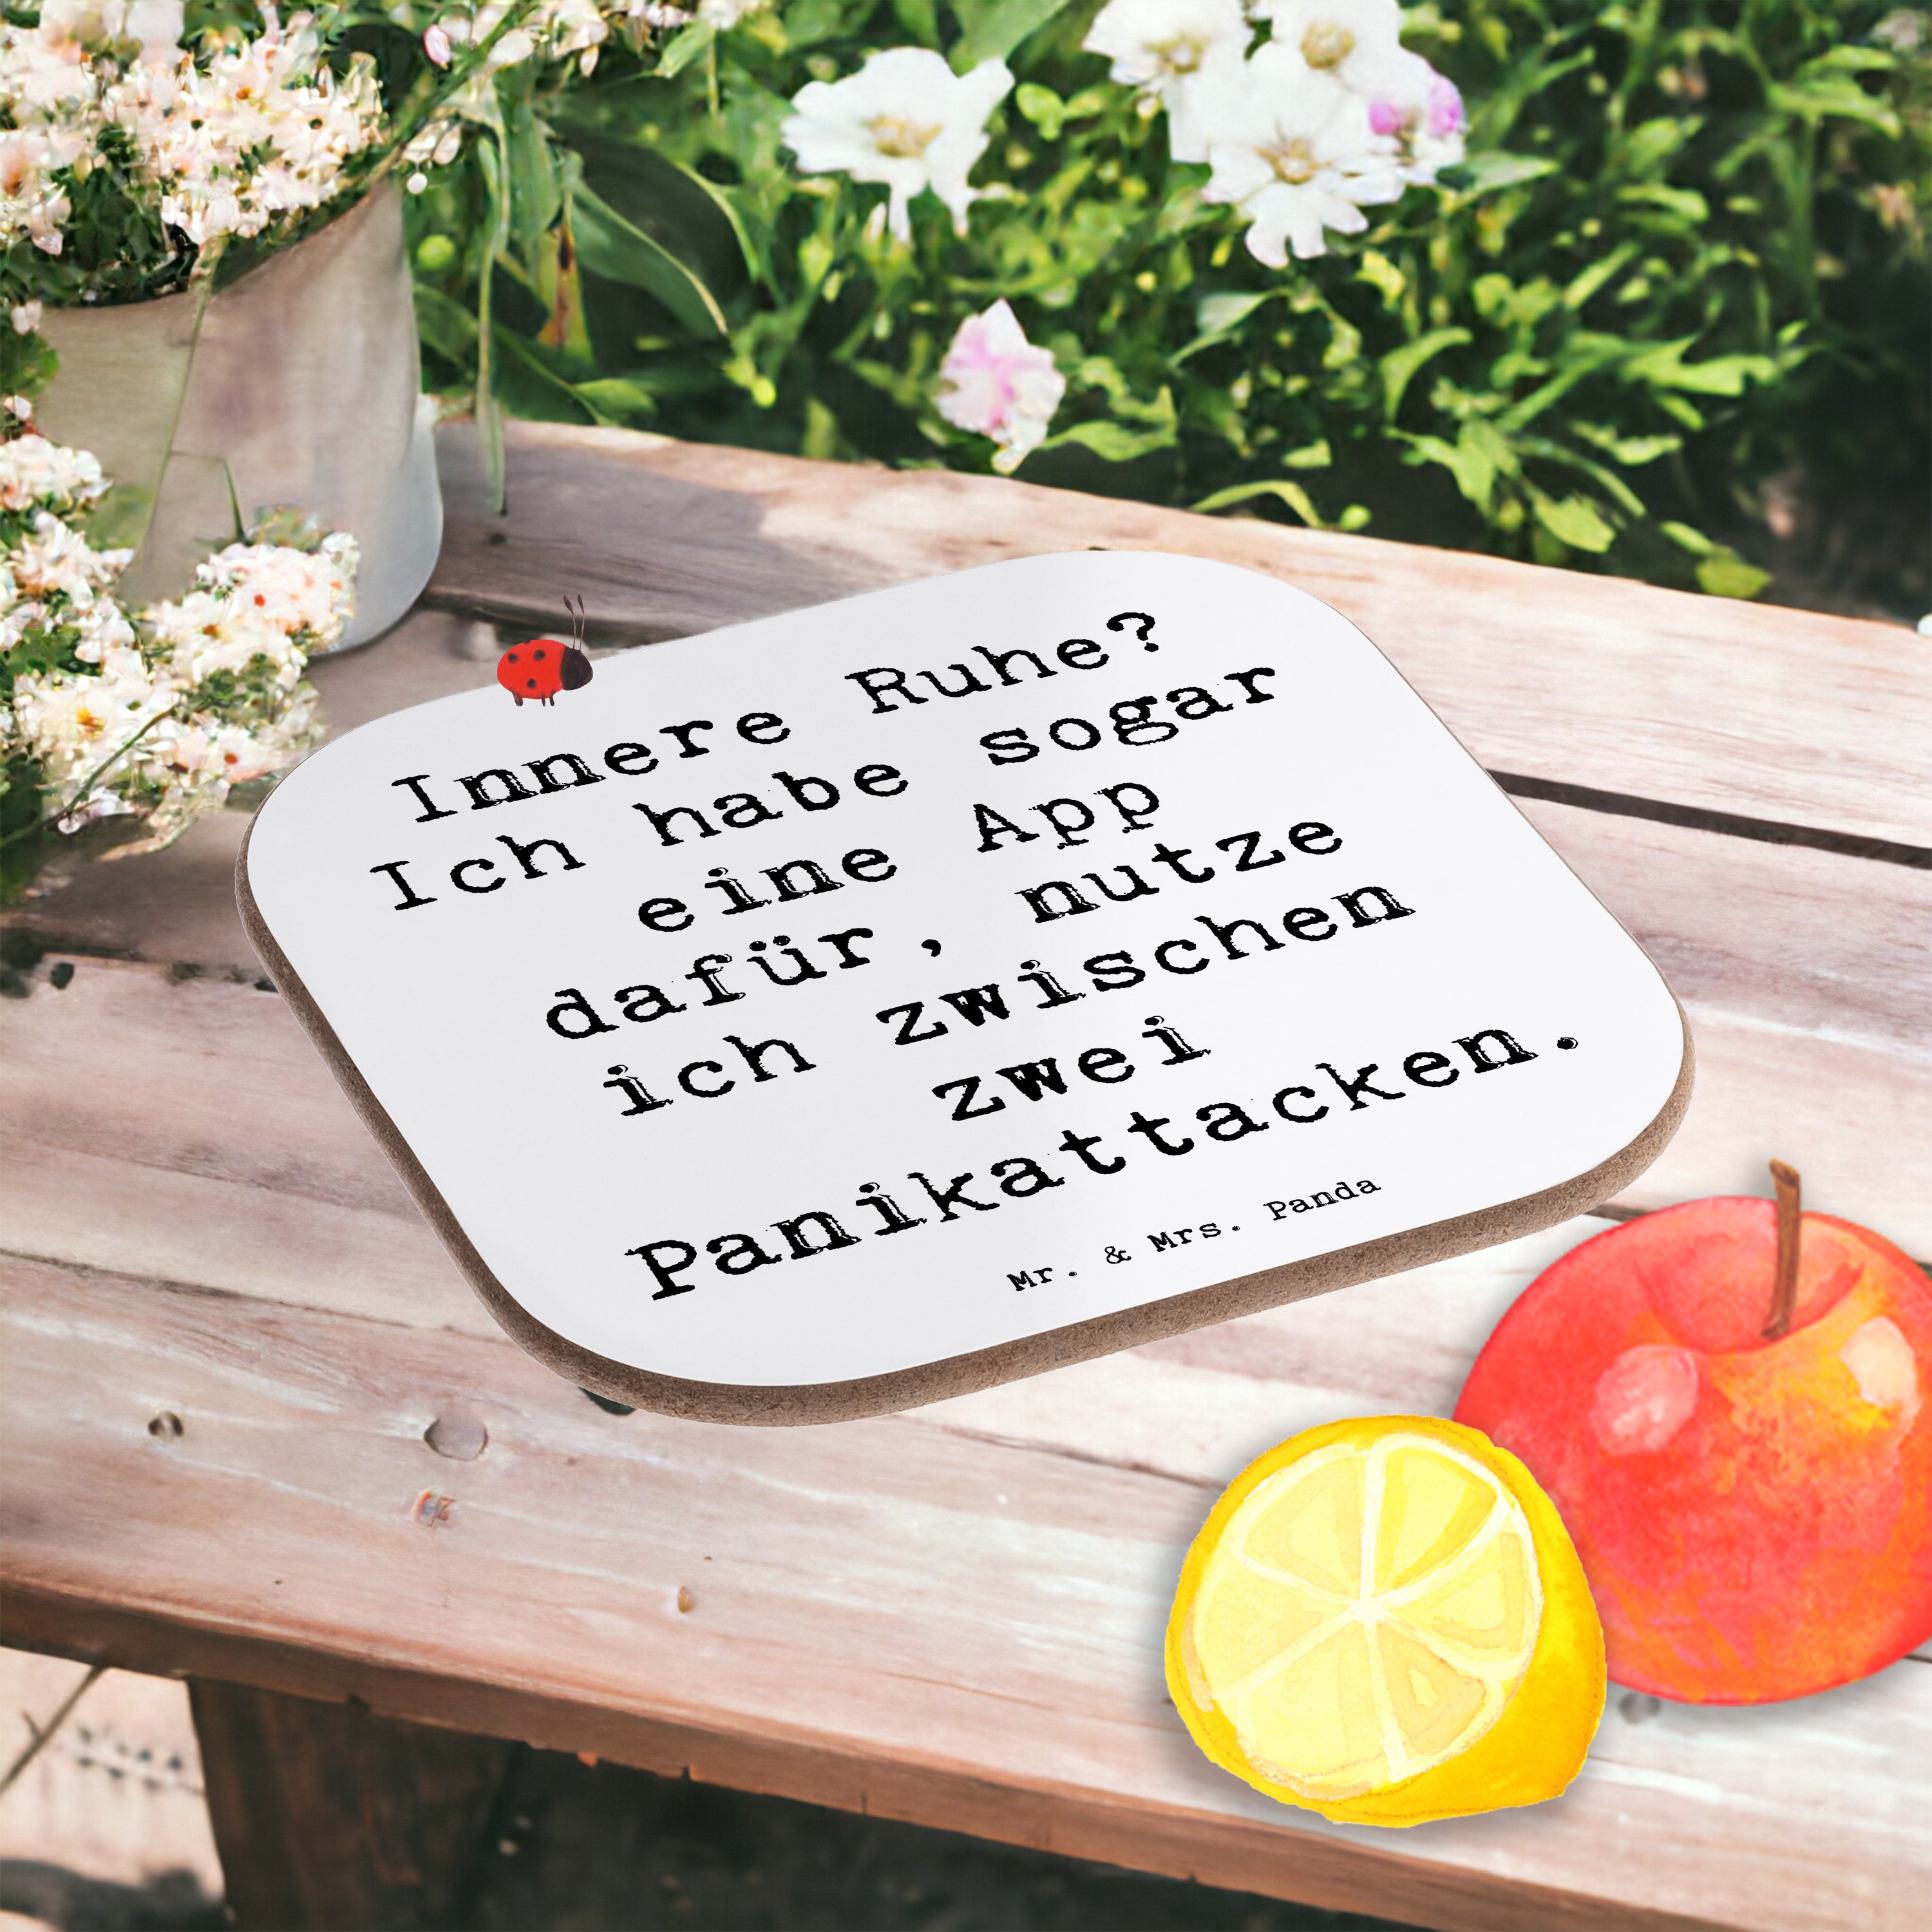 Innere Ruhe?
Ich habe sogar
eine App
dafür, nutze
ich zwischen
zwei
Panikattacken.
Mr. & Mrs. Panda